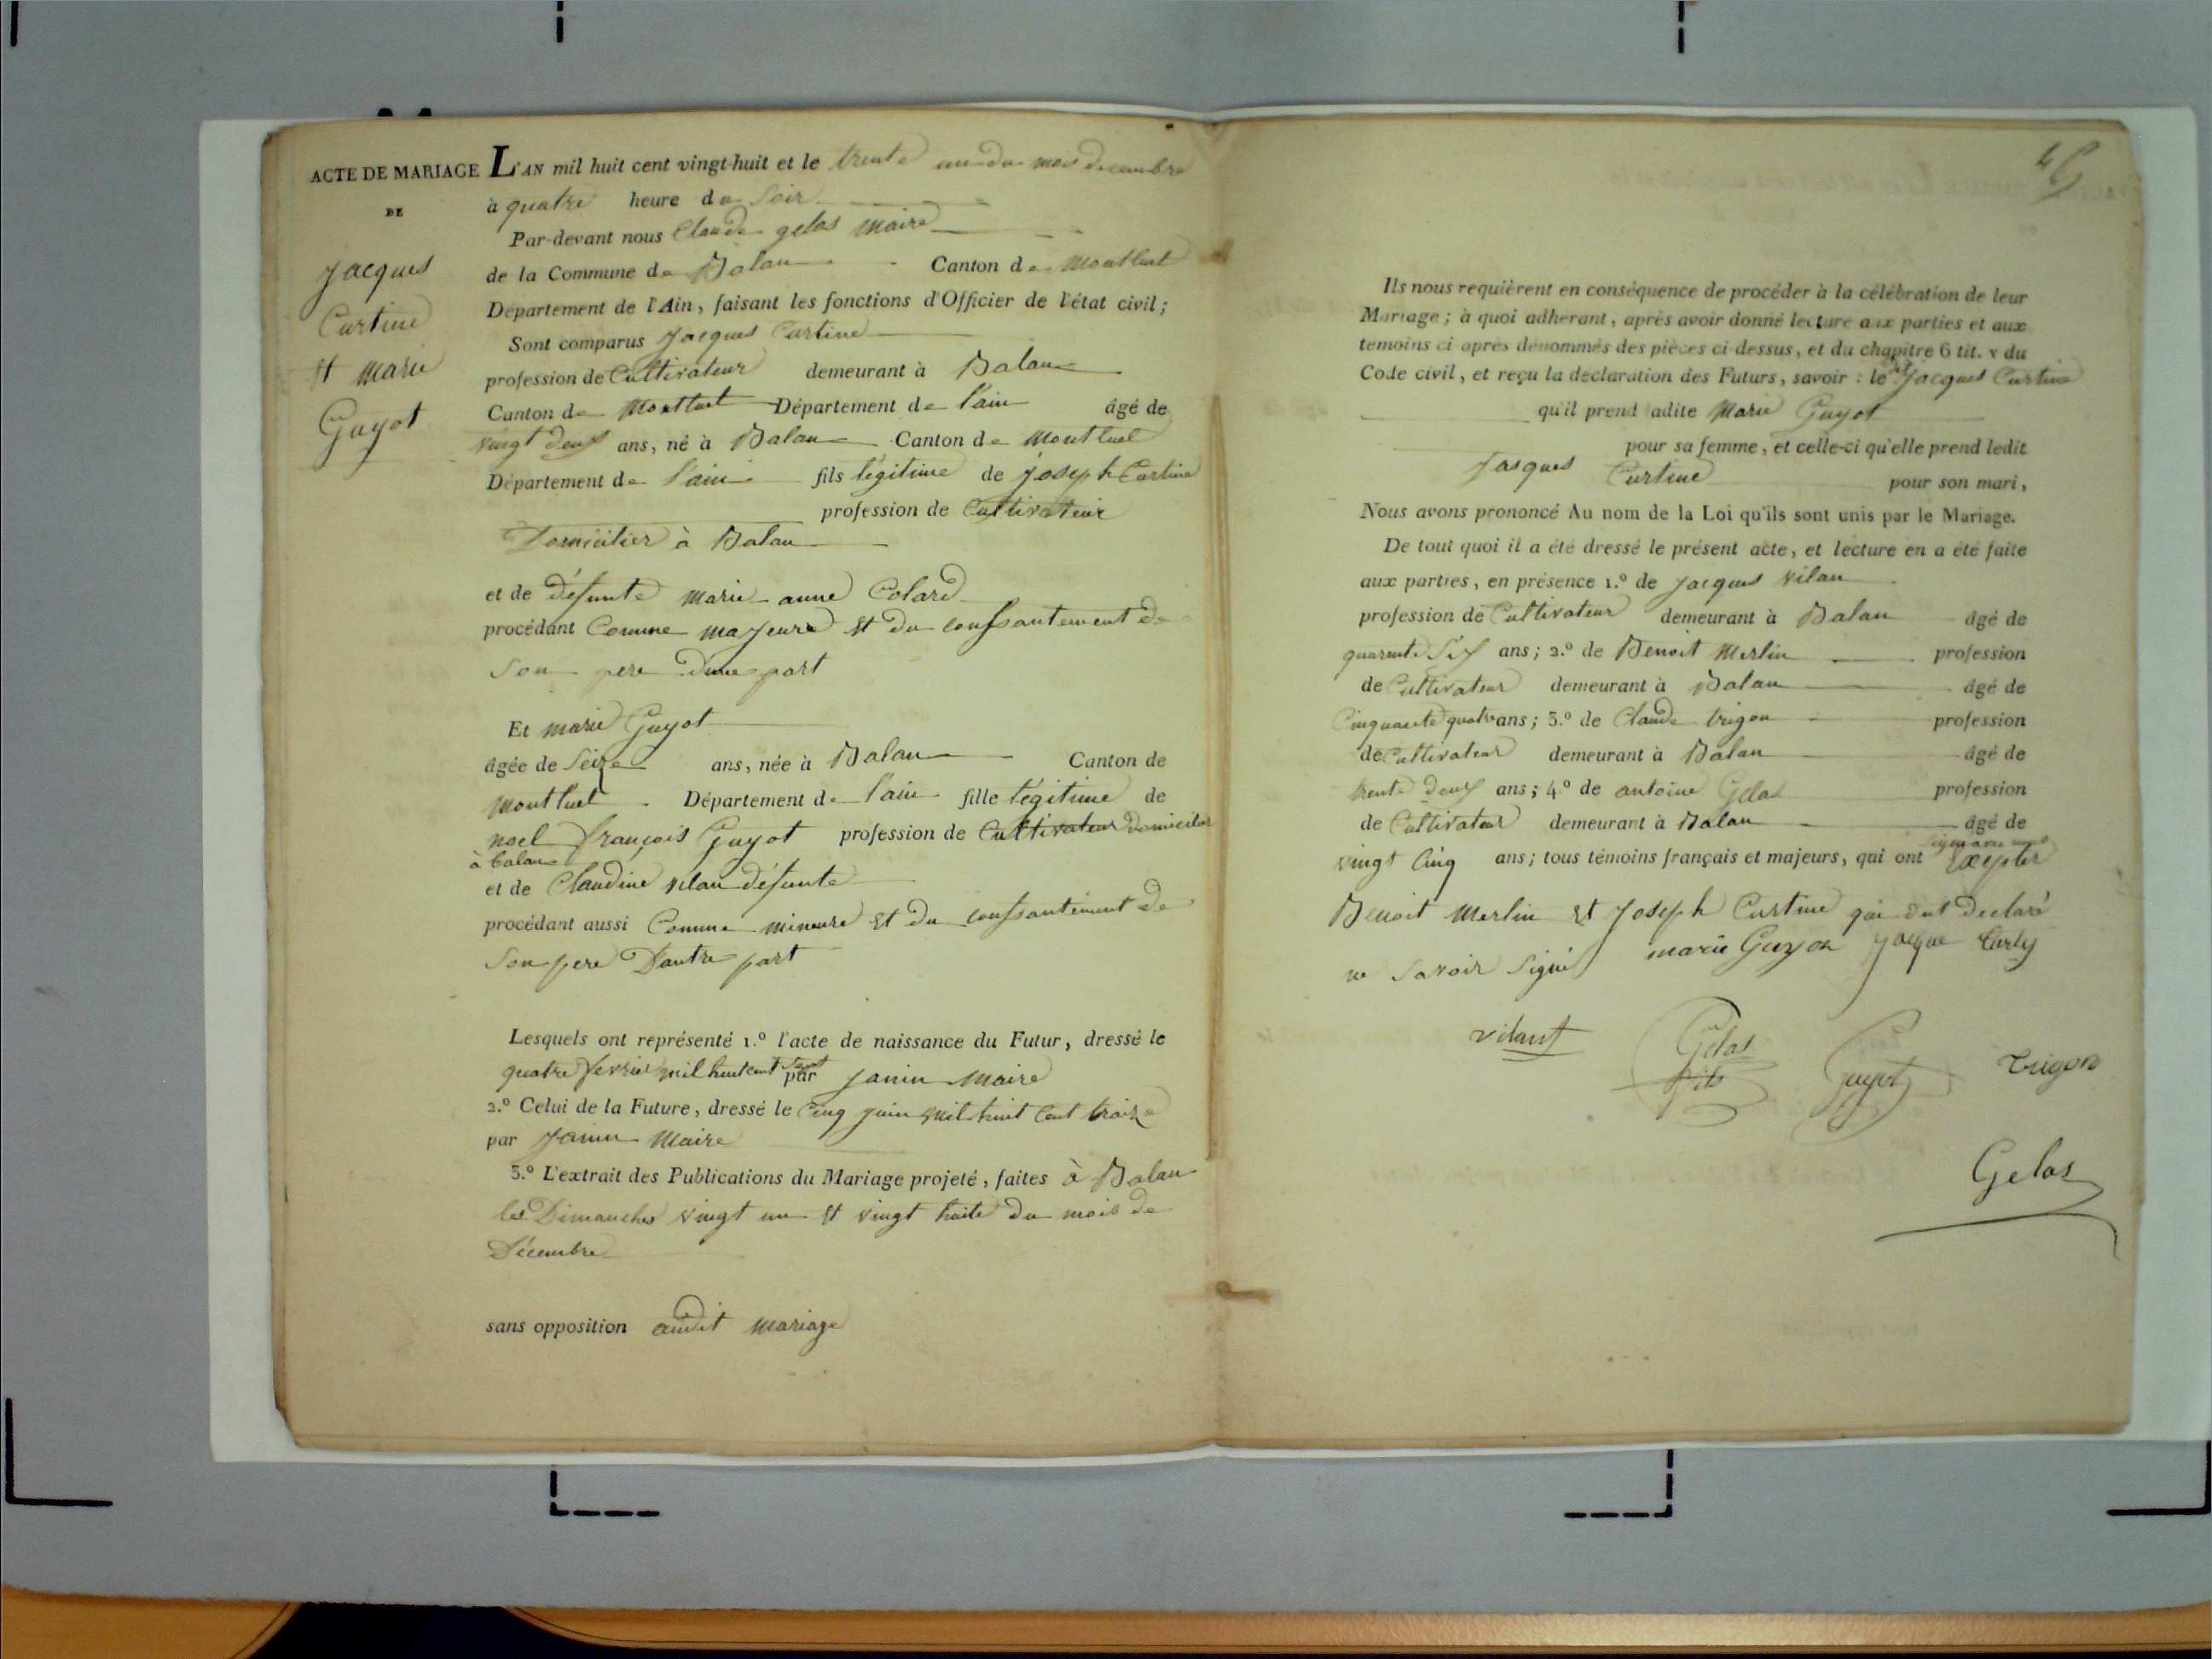 ACTE DE MARIAGE
DE
Jacques
Curtine
et Marie
Guyot
L'AN mil huit cent vingt-huit et le trente un du mois decembre
à quatre heure du Soir
Par-devant nous Claude gelas Maire
de la Commune de Balan Canton de Montluel
Département de l'Ain, faisant les fonctions d'Officier de l'état civil;
Sont comparus Jacques Curtine
profession de Cultivateur demeurant à Balan
Canton de Montluel Département de l'ain âgé de
vingt deux ans, né à Balan Canton de Montluel
Département de l'ain fils légitime de Joseph Curtine
profession de Cultivateur
Domicilier à Balan
et de défunte Marie anne Colard
procédant Comme majeure et du confsantement de
Son pere d'une part
Et marie Guyot
âgée de Seize ans, née à Balan Canton de
Montluel Département de l'ain fille légitime de
noel françois Guyot profession de Cultivateur Domicilier
à balan
et de Claudine vilan défunte
procédant aussi Comme mineure et du confsantement de
Son pere D'autre part
Lesquels ont représenté 1.º l'acte de naissance du Futur, dressé le
quatre fevrier mil huit cent sept par Janin Maire
2.º Celui de la Future, dressé le Cinq juin mil huit Cent traize
par Janin Maire
3.º L'extrait des Publications du Mariage projeté, faites à Balan
les Dimanches vingt un et vingt huite du mois de
Décembre
sans opposition audit mariage
45
Ils nous requièrent en conséquence de procéder à la célébration de leur
Mariage; à quoi adhérant, après avoir donné lecture aux parties et aux
temoins ci après dénommés des pièces ci-dessus, et du chapitre 6 tit. v du
Code civil, et reçu la déclaration des Futurs, savoir : le dt Jacques Curtine
qu'il prend ladite Marie Guyot
pour sa femme, et celle-ci qu'elle prend ledit
Jasques Curtine pour son mari,
Nous avons prononcé Au nom de la Loi qu'ils sont unis par le Mariage.
De tout quoi il a été dressé le présent acte, et lecture en a été faite
aux parties, en présence 1.º de Jacques vilan
profession de Cultivateur demeurant à Balan âgé de
quarente Six ans; 2.º de Benoit Merlin profession
de Cultivateur demeurant à Balan âgé de
Cinquante quatre ans; 3.º de Claude trigon profession
de Cultivateur demeurant à Balan âgé de
trente deux ans; 4º de antoine Gelas profession
de Cultivateur demeurant à Balan âgé de
vingt Cinq ans; tous témoins français et majeurs, qui ont signé avec nous Excepter
Benoit Merlin et Joseph Curtine qui ont Declaré
ne Savoir Signé marie Guyon jacque
vilant
Gelas
fils
Guyot
trigon
Gelas